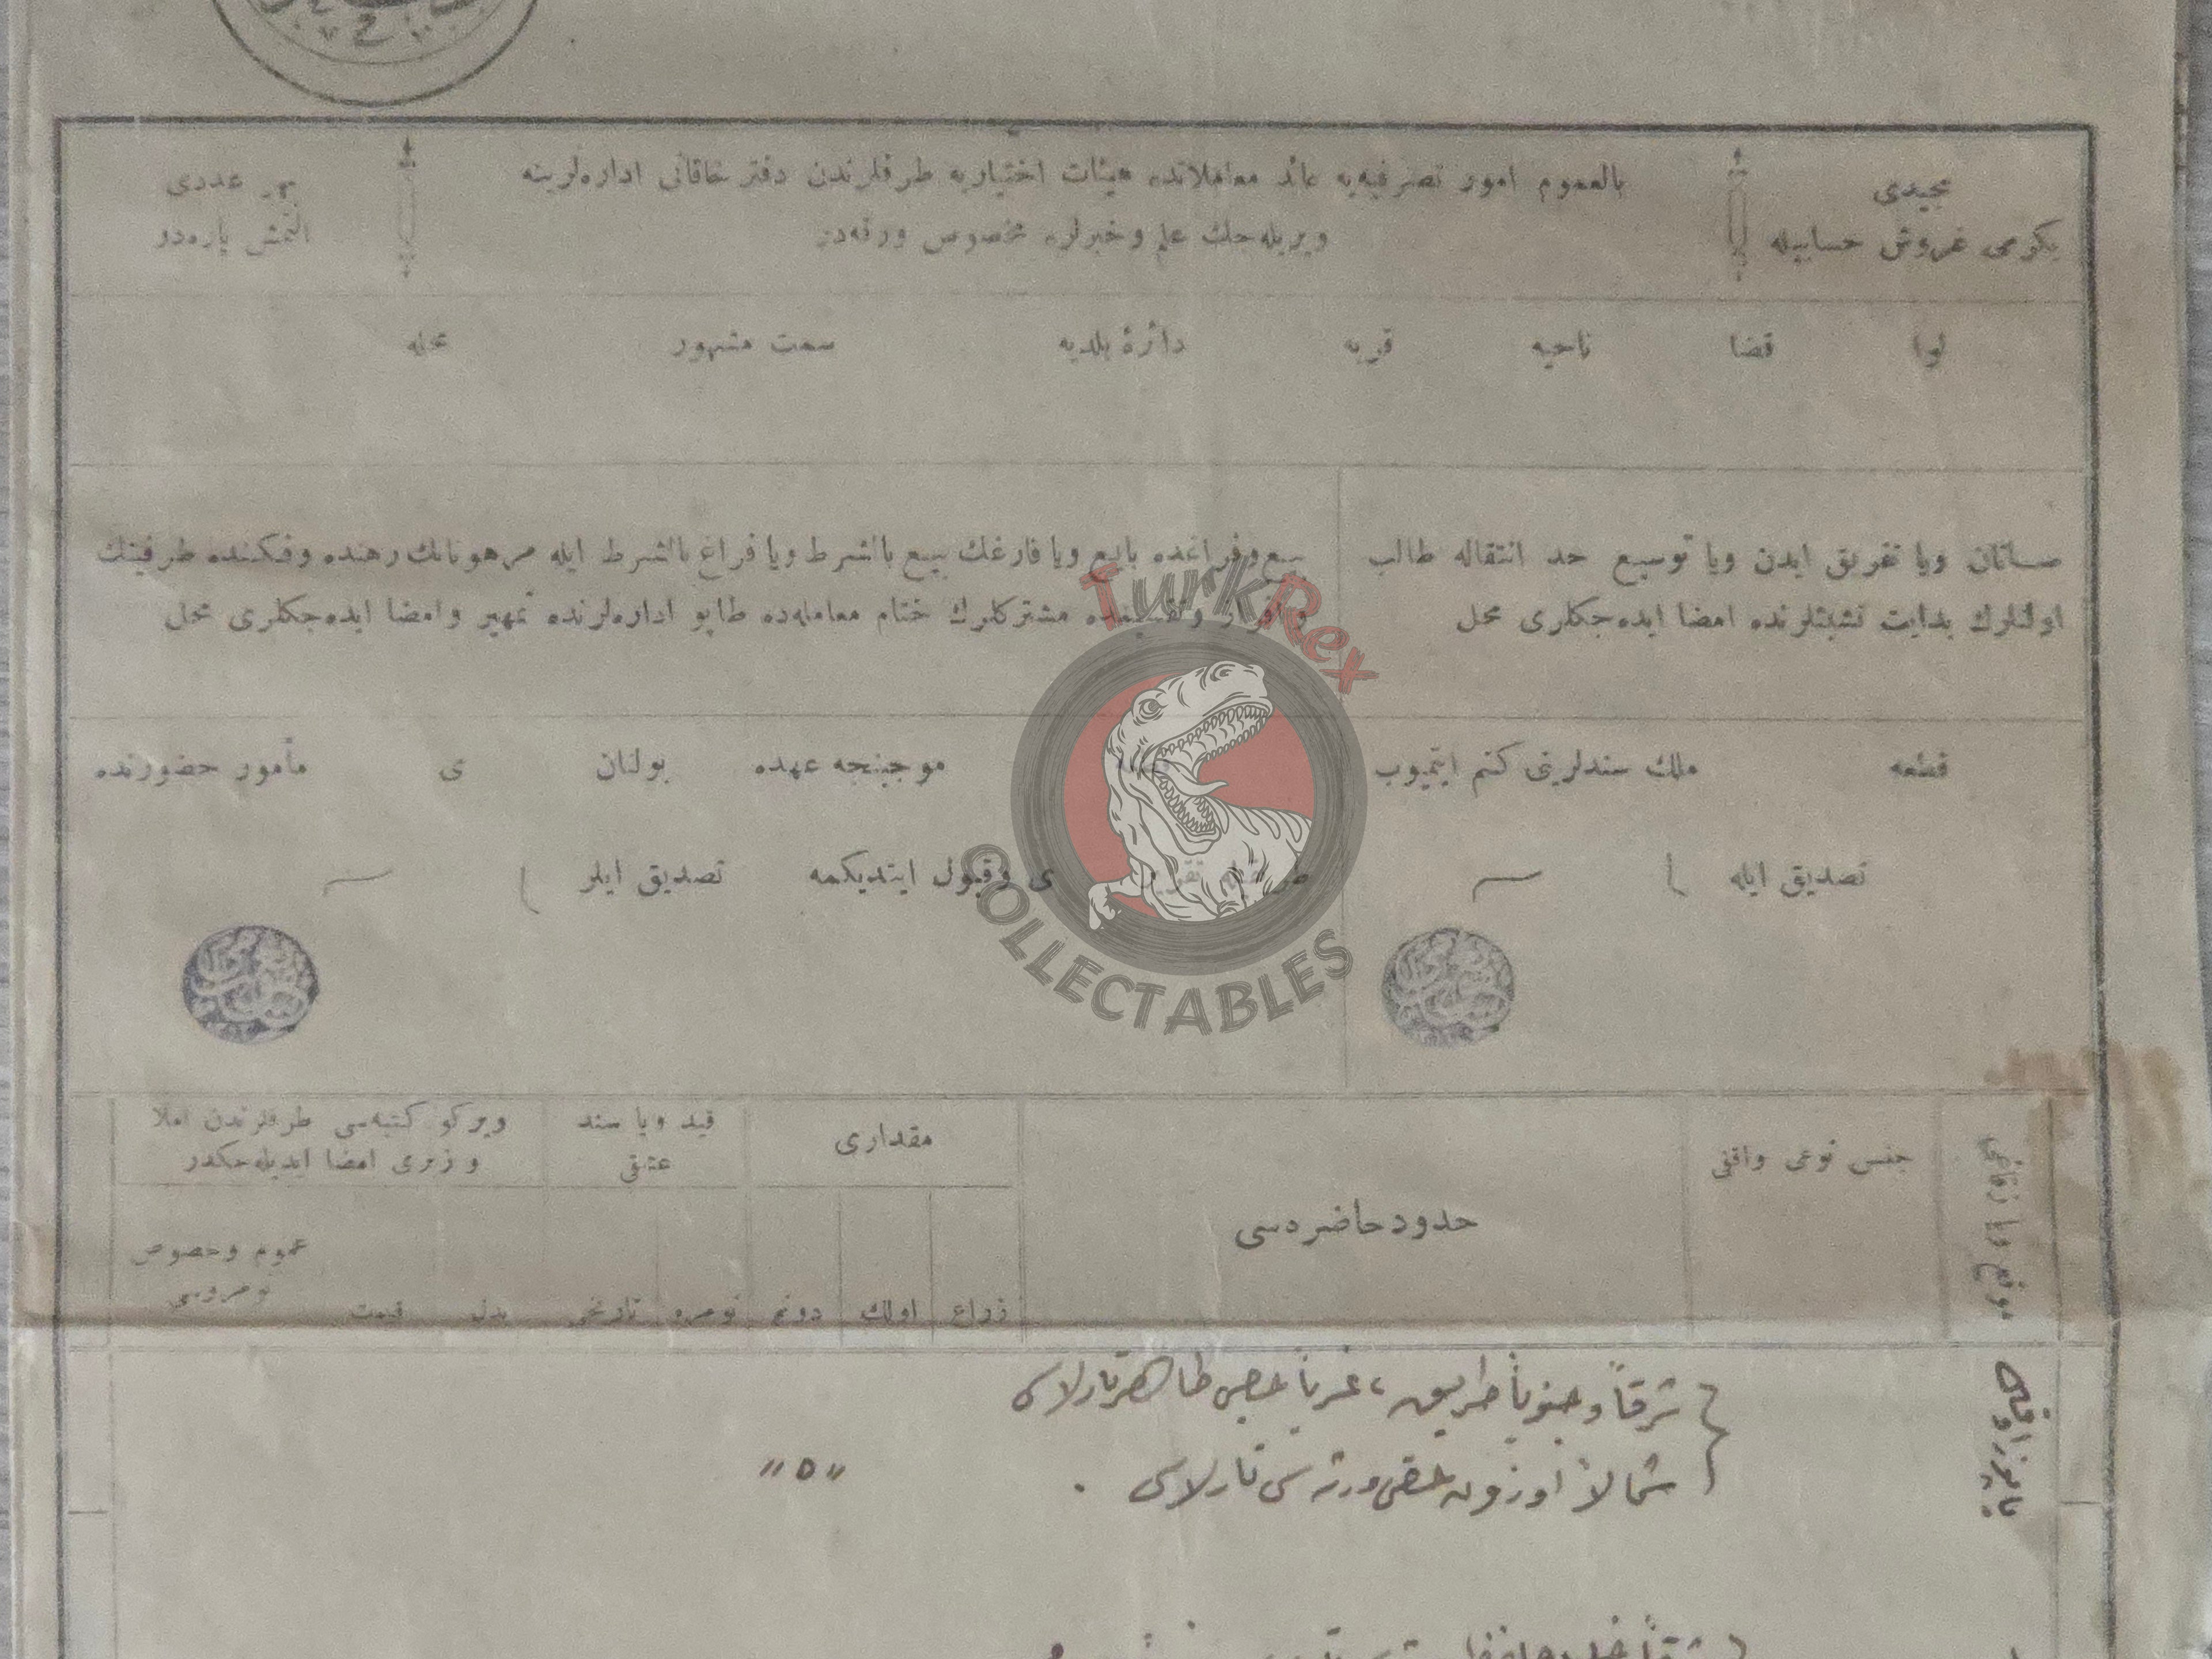 مجیدی
یكرمی غروش حسابیله
بالعموم امور تصرفیه‌یه عائد معاملاتده هیئات اختیاریه طرفلرندن دفتر خاقانی اداره‌لرینه
ویریله‌جك علم و خبرلره مخصوص ورقه‌در
بهر عددی
التمش پاره‌در
لوا قضا ناحیه قریه دائرۀ بلدیه سمت مشهور محله
صاتان ویا تفریق ایدن ویا توسیع حد انتقاله طالب
اولنلرك بدایت تشبثلرنده امضا ایده‌جكلری محل
بیع وفراغده بایع ویا فارغك بیع بالشرط ویا فراغ بالشرط ایله مرهوناتك رهنده وفكنده طرفینك
وافراز وتقسیمده مشتركلرك ختام معامله‌ده طاپو اداره‌لرنده تمهیر وامضا ایده‌جكلری محل
قطعه ملك سندلرینی كتم ایتمیوب
تصدیق ایله
موجبنجه عهده بولنان ی مأمور حضورنده
ی وقبول ایتدیكمه تصدیق ایلر
TurkRex
COLLECTABLES
موقع ویا زقاغی
جنس نوعی واقفی
حدود حاضره‌سی
مقداری
ذراع اولك دونم
قید ویا سند
عتقی
نومره تاریخی
ویركو كتبه‌سی طرفلرندن املا
و زیری امضا ایدیله‌جكدر
بدل قیمت
عموم وخصوص
نومروسی
شرقاً و جنوباً طریق، غرباً طاهر تارلاسی
شمالاً اوزون ورثه‌سی تارلاسی .
"۵"